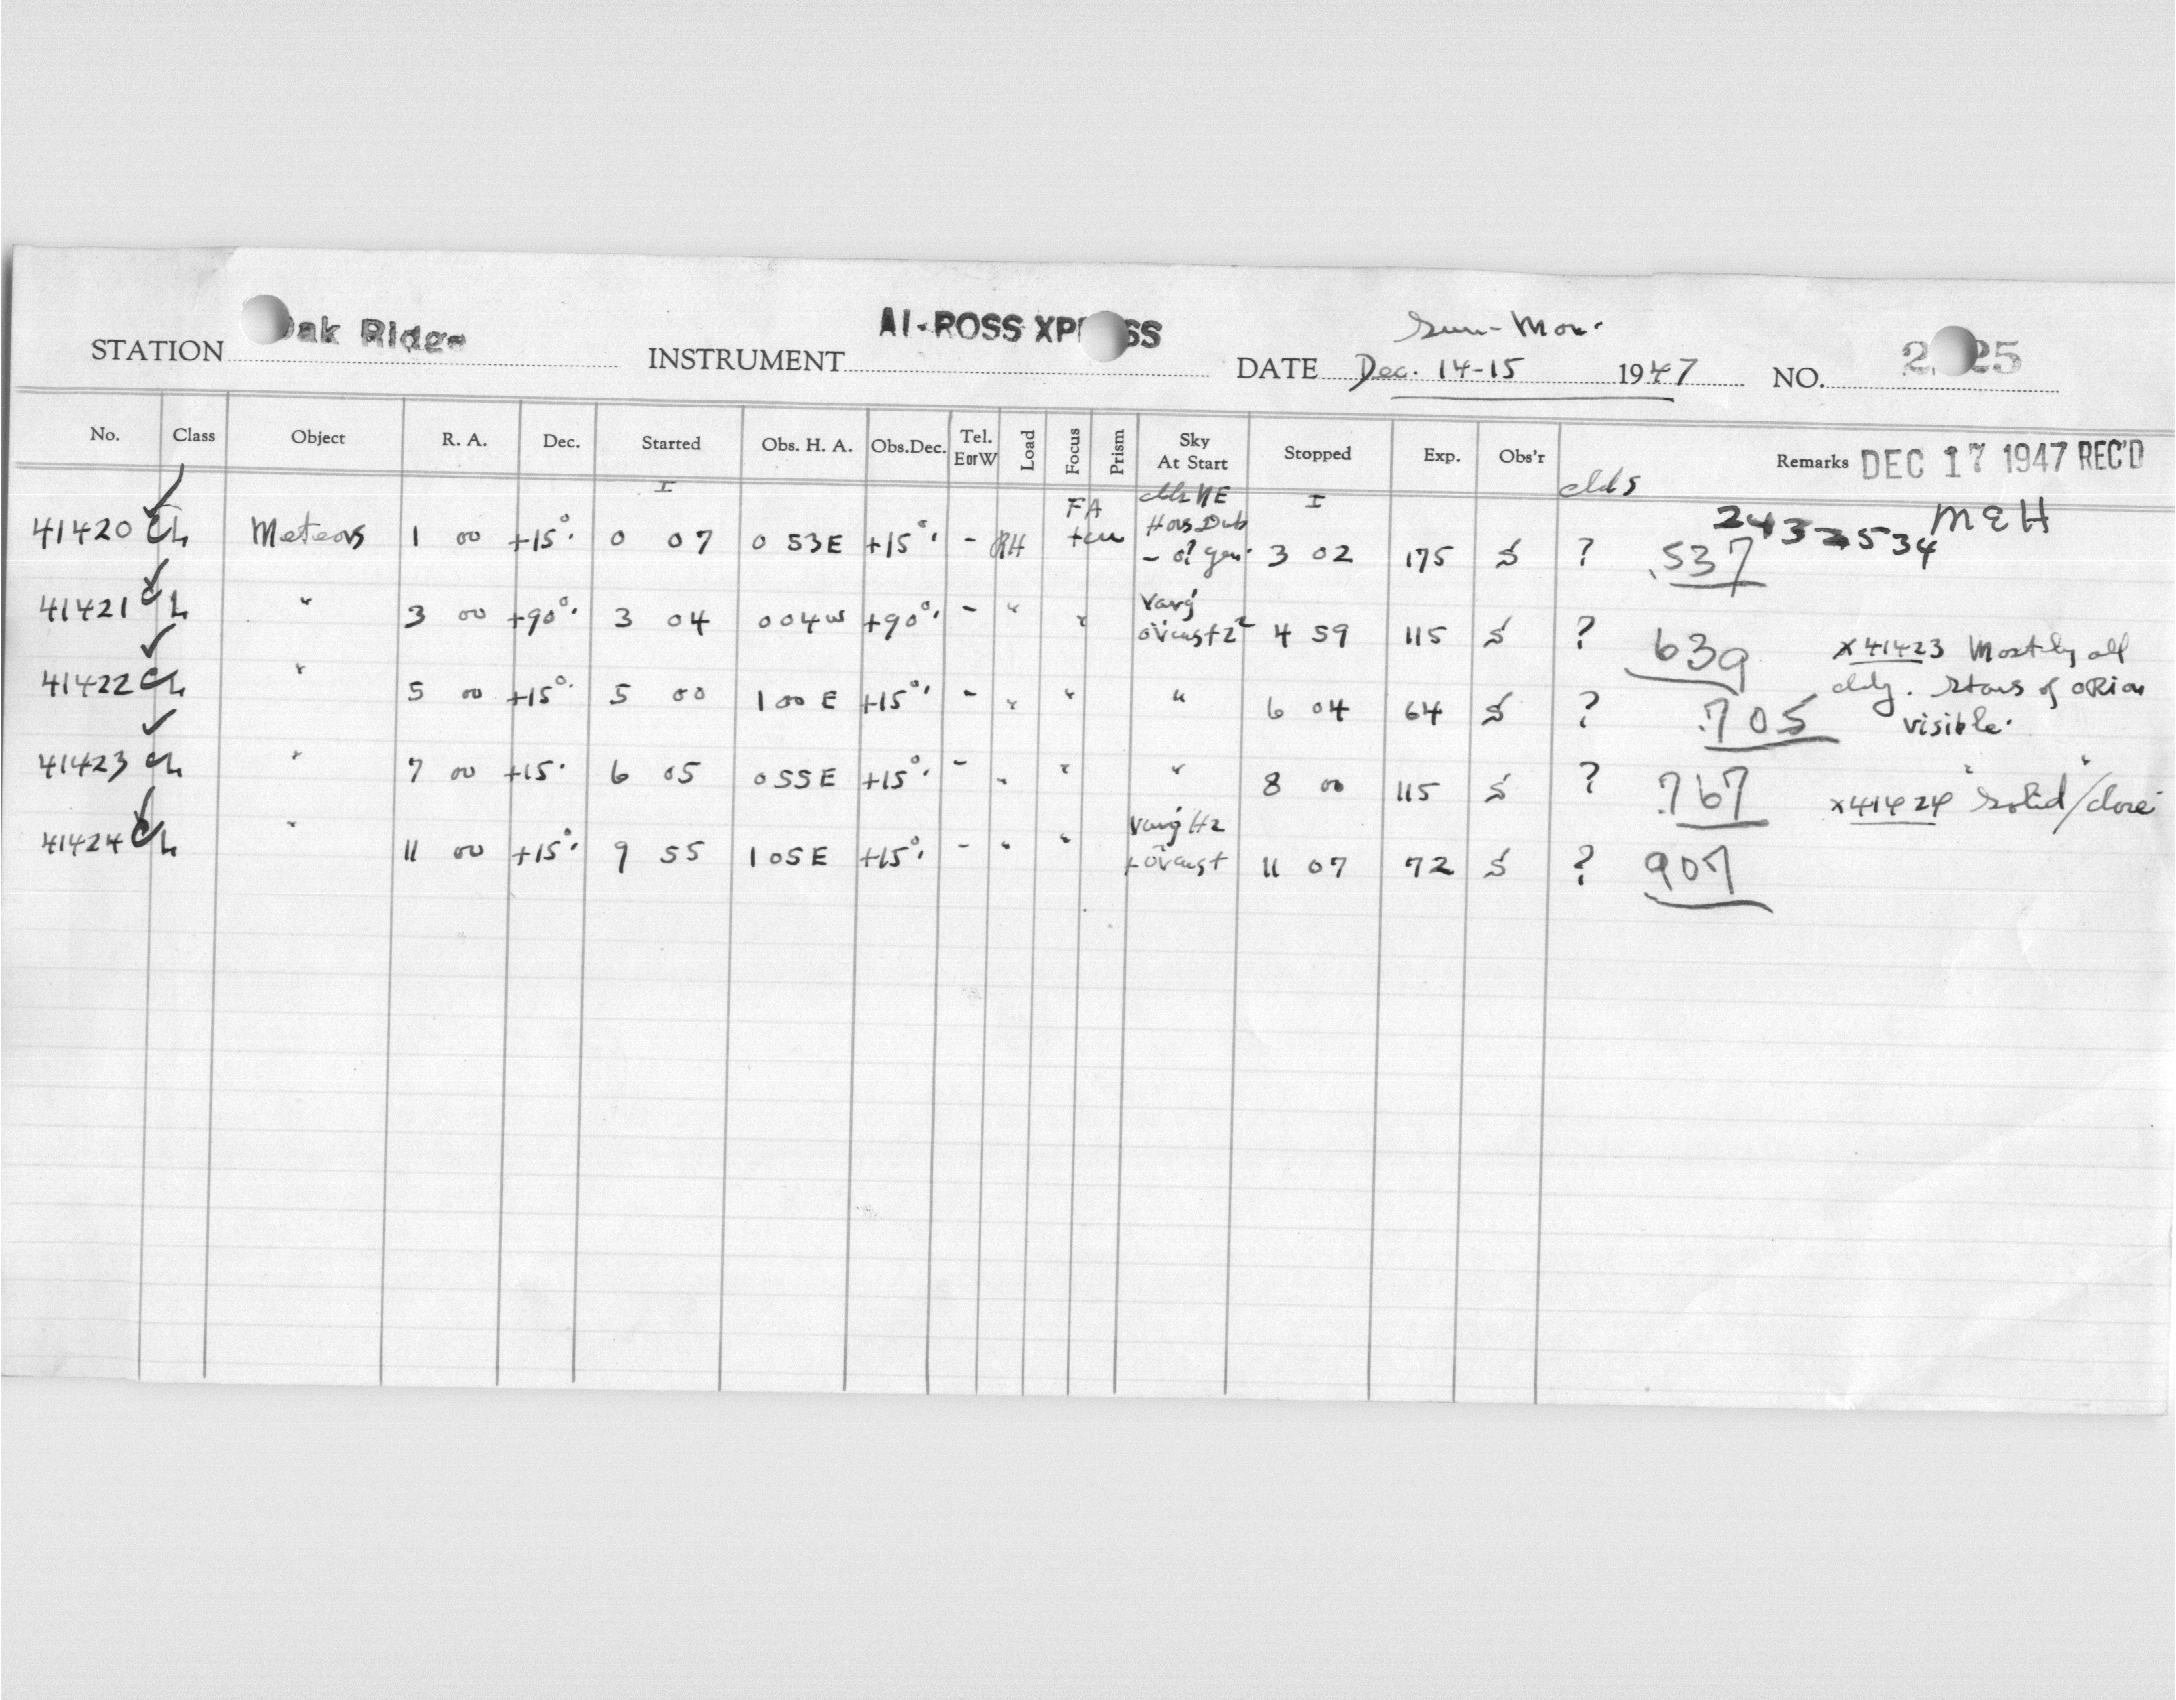 STATION Oak Ridge INSTRUMENT AI-ROSS XPRESS DATE Sun-Mon. Dec. 14-15 1947 NO. 25
No. Class Object R. A. Dec. Started Obs. H. A. Obs.Dec. Tel. E or W Load Focus Prism Sky At Start Stopped Exp. Obs'r clds Remarks DEC 17 1947 REC'D
I FA NE I 2432534 M&H
41420 Ch Meteors 1 00 +15° 0 07 0 53E +15° - RH 3 02 175 S ? .537
41421 Ch " 3 00 +90° 3 04 0 04W +90° - " " Varg ovcast 4 59 115 S ? 639
41422 Ch " 5 00 +15° 5 00 1 00 E +15° - " " " 6 04 64 S ? .705
x 41423 Mostly all
cldy. Stars of ORion
visible.
41423 Ch " 7 00 +15° 6 05 0 55E +15° - " " " 8 00 115 S ? .767
x 41424 " " solid/dore
41424 Ch " 11 00 +15° 9 55 1 05E +15° - " " Varg Hz + ovcast 11 07 72 S ? 907